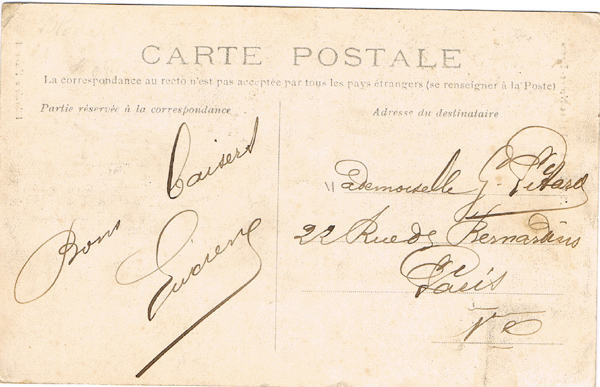 CARTE POSTALE
La correspondance au recto n'est pas acceptée par tous les pays étrangers (se renseigner à la Poste)
Partie réservée à la correspondance
Bons baisers
Adresse du destinataire
Mademoiselle G. Pitard
22 Rue des Bernardins
Paris
Ve